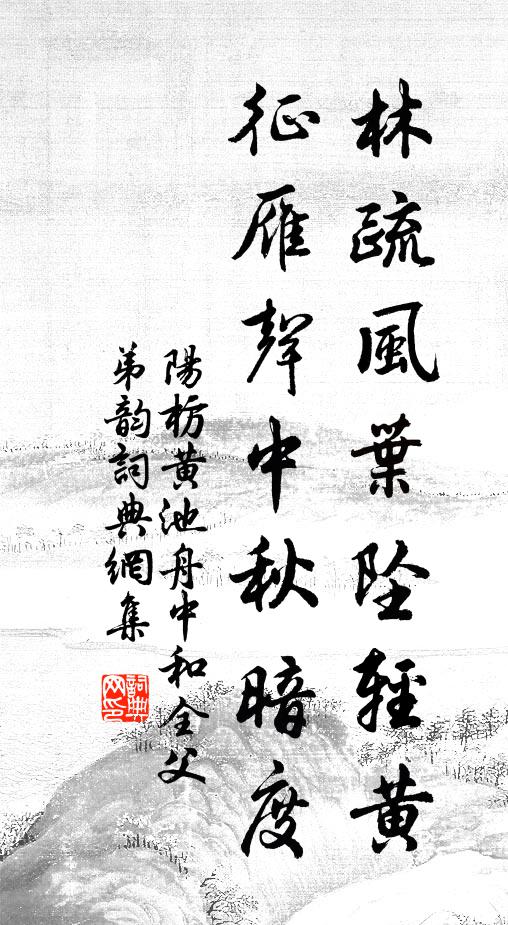 林疏風葉墜輕黃
征雁聲中秋暗度
陽枋黃池舟中和全父
弟韵詞典網集
詞典网印